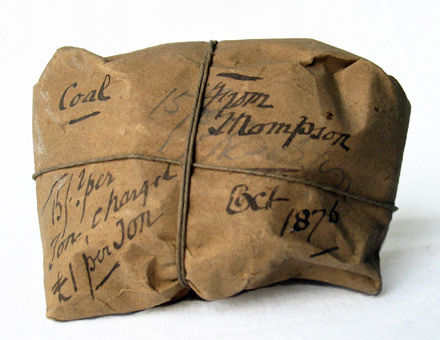 Coal
From
Mompson
15/- per
Ton, charged
£1 per Ton
Oct
1876